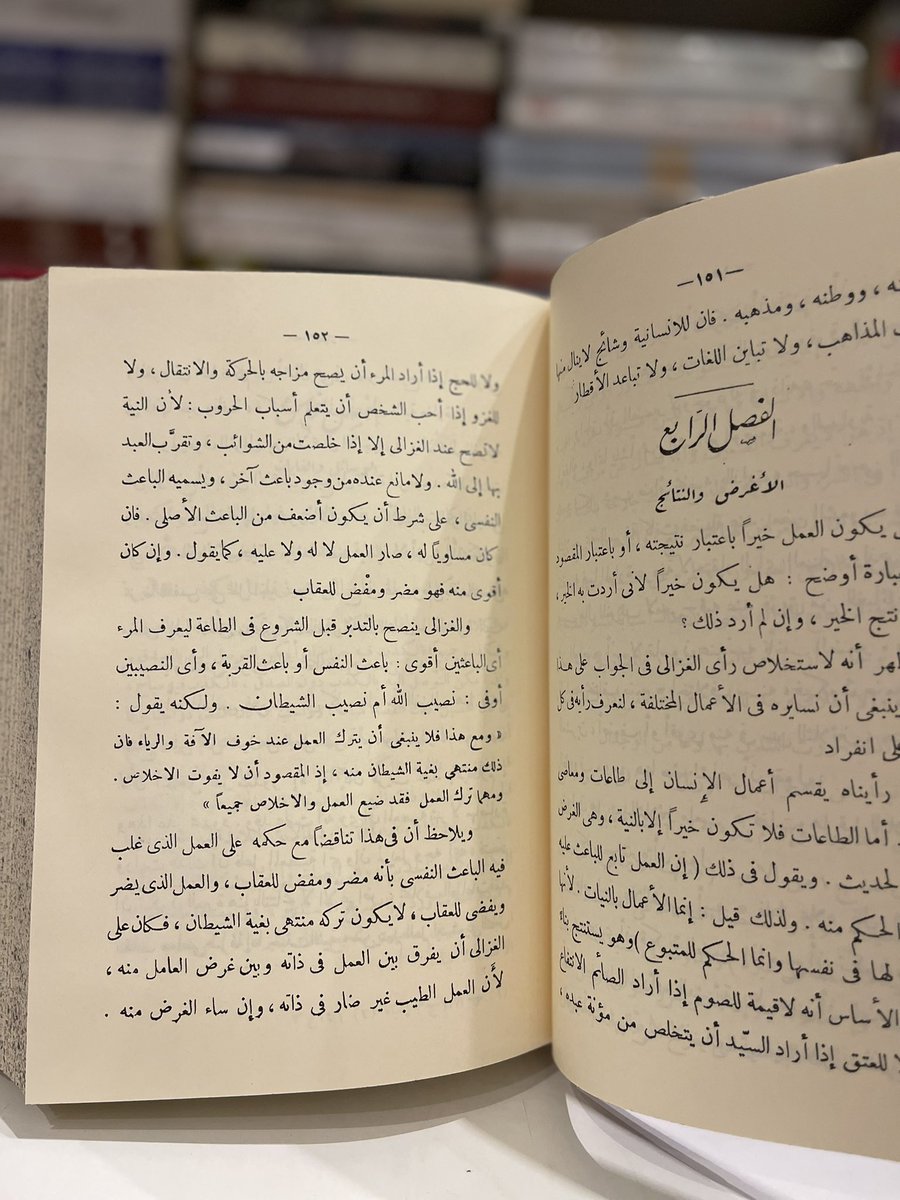 — ١٥١ —
ـه ، ووطنه ، ومذهبه . فان للانسانية وشائج لاينال منها
المذاهب ، ولا تباين اللغات ، ولا تباعد الأقطار
الفصل الرابع
الأغرض والنتائج
يكون العمل خيراً باعتبار نتيجته ، أو باعتبار المقصود
ـبارة أوضح : هل يكون خيراً لانى أردت به الخير ،
نتج الخير ، وإن لم أرد ذلك ؟
ـهر أنه لاستخلاص رأى الغزالى فى الجواب على هذا
ينبغى أن نسايره فى الأعمال المختلفة ، لنعرف رأيه فى كل
على انفراد
رأيناه يقسم أعمال الإنسان إلى طاعات ومعاصى
أما الطاعات فلا تكون خيراً إلا بالنية ، وهى الغرض
لحديث . ويقول فى ذلك ( إن العمل تابع للباعث عليه
الحكم منه . ولذلك قيل : إنما الأعمال بالنيات . لأنها
لها فى نفسها وانما الحكم للمتبوع ) وهو يستنتج بناء
الأساس أنه لاقيمة للصوم إذا أراد الصائم الانتفاع
للعتق إذا أراد السيّد أن يتخلص من مؤنة عبده ،
— ١٥٢ —
ولا للحج إذا أراد المرء أن يصح مزاجه بالحركة والانتقال ، ولا
للغزو إذا أحب الشخص أن يتعلم أسباب الحروب : لأن النية
لاتصح عند الغزالى إلا إذا خلصت من الشوائب ، وتقرَّب العبد
بها إلى الله . ولا مانع عنده من وجود باعث آخر ، ويسميه الباعث
النفسى ، على شرط أن يكون أضعف من الباعث الأصلى . فان
كان مساوياً له ، صار العمل لا له ولا عليه ، كما يقول . وإن كان
أقوى منه فهو مضر ومفْض للعقاب
والغزالى ينصح بالتدبر قبل الشروع فى الطاعة ليعرف المرء
أى الباعثين أقوى : باعث النفس أو باعث القربة ، وأى النصيبين
أوفى : نصيب الله أم نصيب الشيطان . ولكنه يقول :
« ومع هذا فلا ينبغى أن يترك العمل عند خوف الآفة والرياء فان
ذلك منتهى بغية الشيطان منه ، إذ المقصود أن لا يفوت الاخلاص .
ومهما ترك العمل فقد ضيع العمل والاخلاص جميعاً »
ويلاحظ أن فى هذا تناقضاً مع حكمه على العمل الذى غلب
فيه الباعث النفسى بأنه مضر ومفض للعقاب ، والعمل الذى يضر
ويفضى للعقاب ، لايكون تركه منتهى بغية الشيطان ، فكان على
الغزالى أن يفرق بين العمل فى ذاته وبين غرض العامل منه ،
لأَن العمل الطيب غير ضار فى ذاته ، وإن ساء الغرض منه .